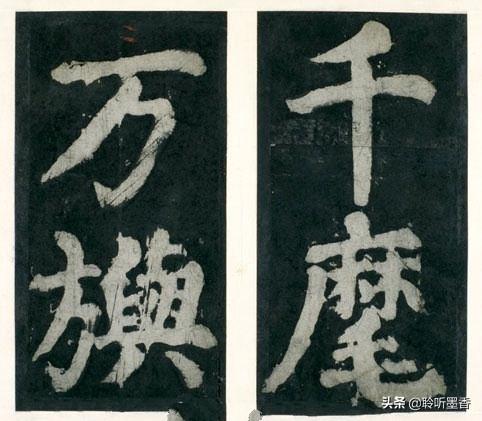 千麾
万旟
头条 @聆听墨香